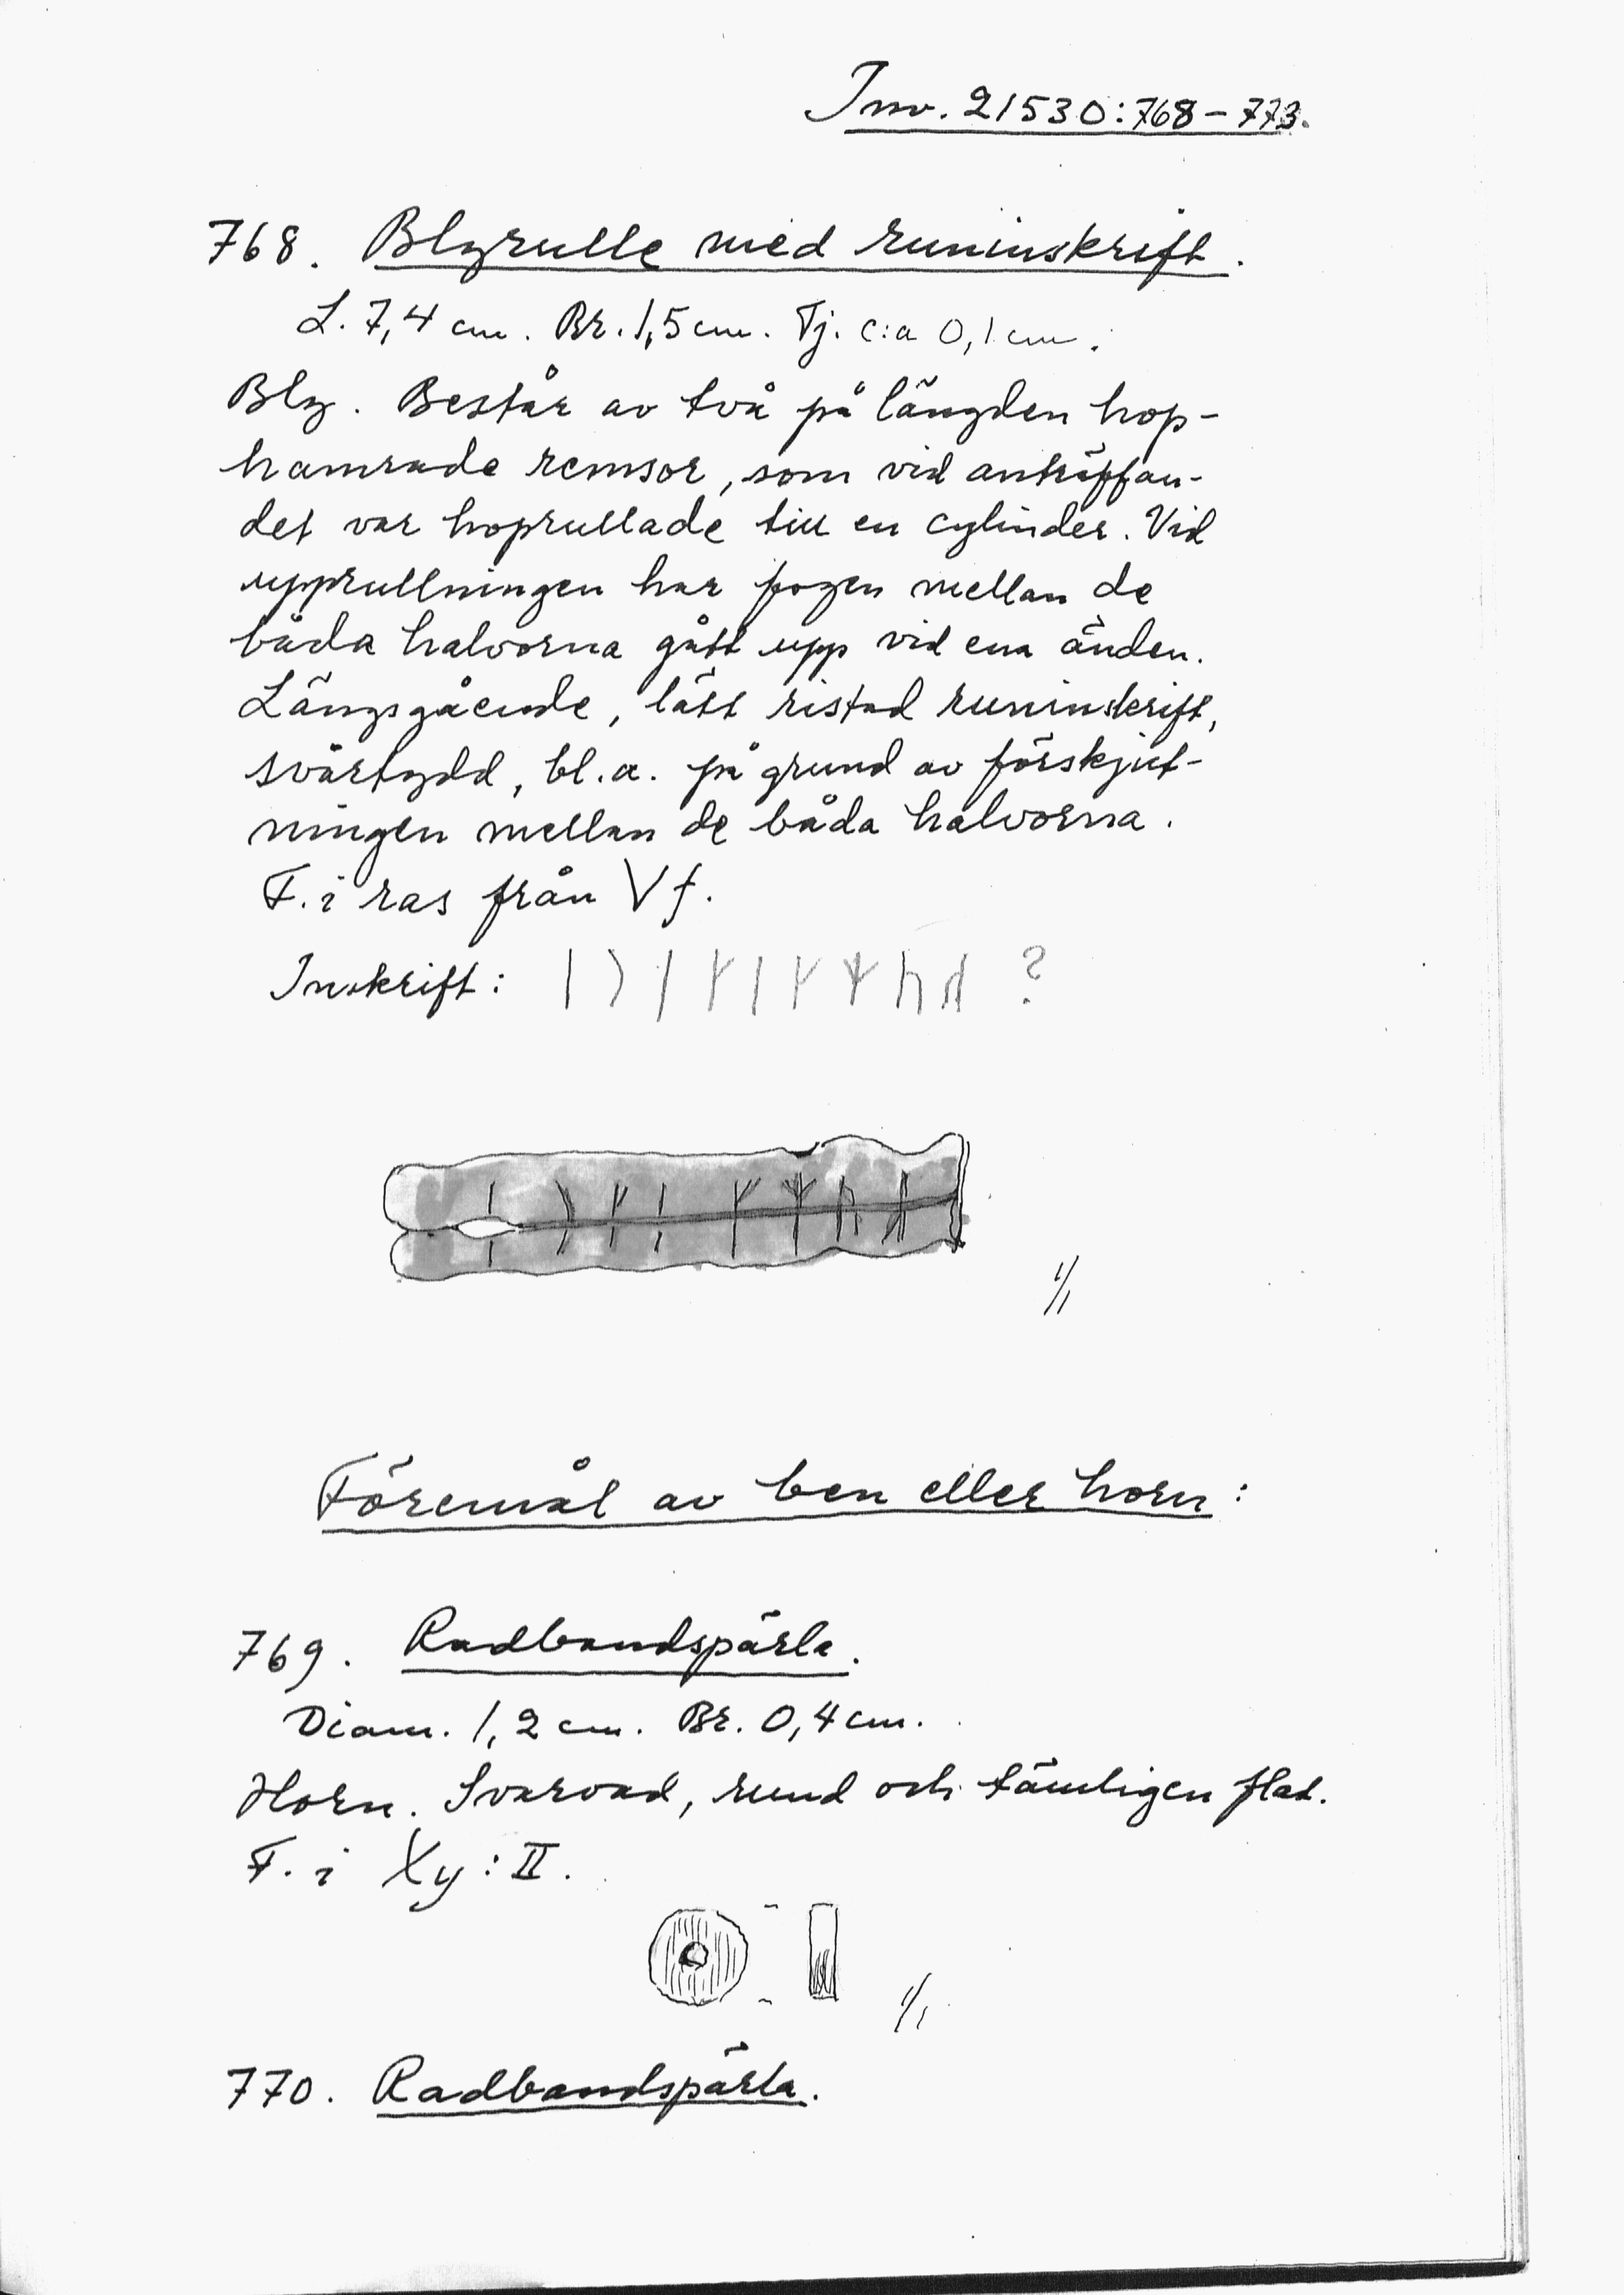 Inv. 21530:768–773.
768. Blyrulle med runinskrift.
L. 7,4 cm. Br. 1,5 cm. Tj. c:a 0,1 cm.
Bly. Består av två på längden hop-
hamrade remsor, som vid anträffan-
det var hoprullade till en cylinder. Vid
upprullningen har fogen mellan de
båda halvorna gått upp vid ena änden.
Längsgående, lätt ristad runinskrift,
svårtydd, bl.a. på grund av förskjut-
ningen mellan de båda halvorna.
F. i ras från Vf.
Inskrift: ?
1/1
Föremål av ben eller horn:
769. Radbandspärla.
Diam. 1,2 cm. Br. 0,4 cm.
Horn. Svarvad, rund och tämligen flat.
F. i Xy: II.
1/1
770. Radbandspärla.